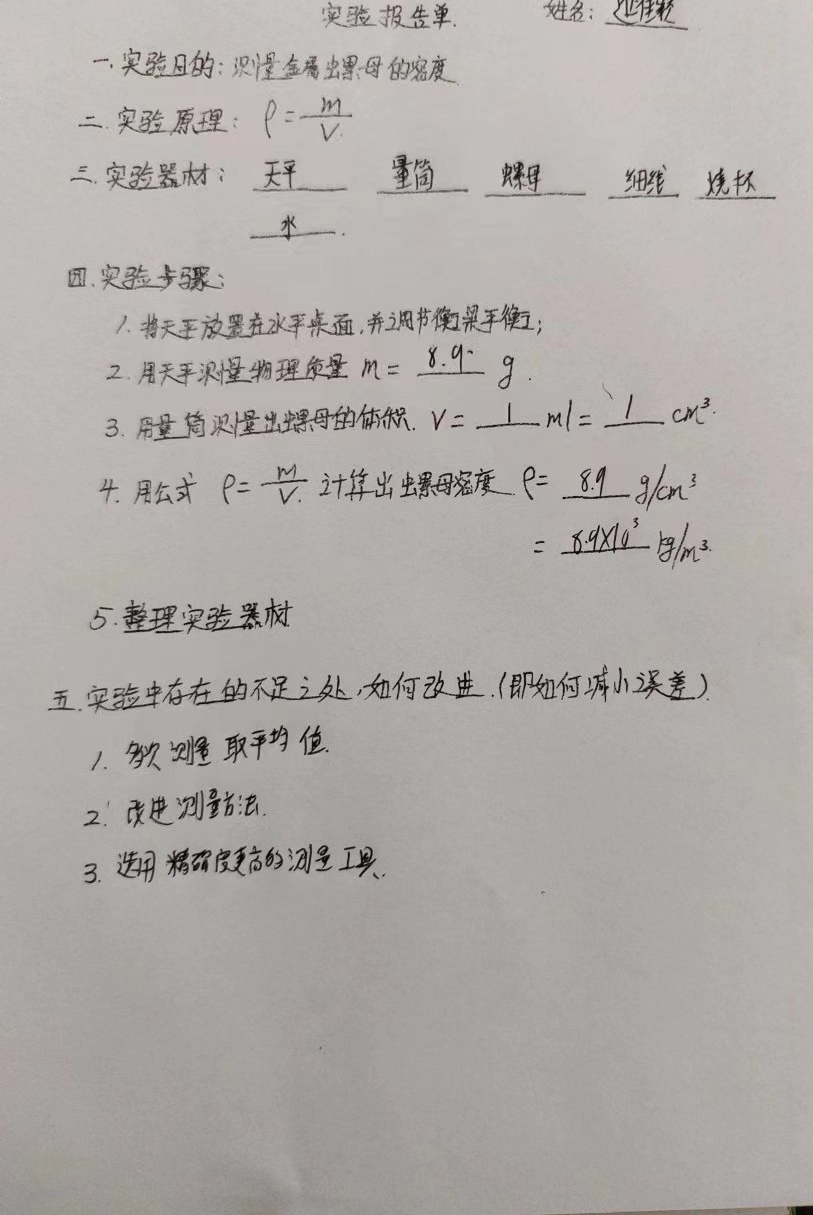 实验报告单.
姓名:
一.实验目的:测量金属螺母的密度
二.实验原理: ρ=m/V.
三.实验器材: 天平 量筒 螺母 细线 烧杯
水.
四.实验步骤:
1.将天平放置在水平桌面,并调节衡梁平衡;
2.用天平测量物理质量 m= 8.9 g.
3.用量筒测量出螺母的体积. V= 1 ml= 1 cm³.
4.用公式 ρ=m/V. 计算出螺母密度 ρ= 8.9 g/cm³
= 8.9X10³ kg/m³.
5.整理实验器材
五.实验中存在的不足之处,如何改进.(即如何减小误差)
1.多次测量取平均值.
2.改进测量方法.
3.选用精确度更高的测量工具.